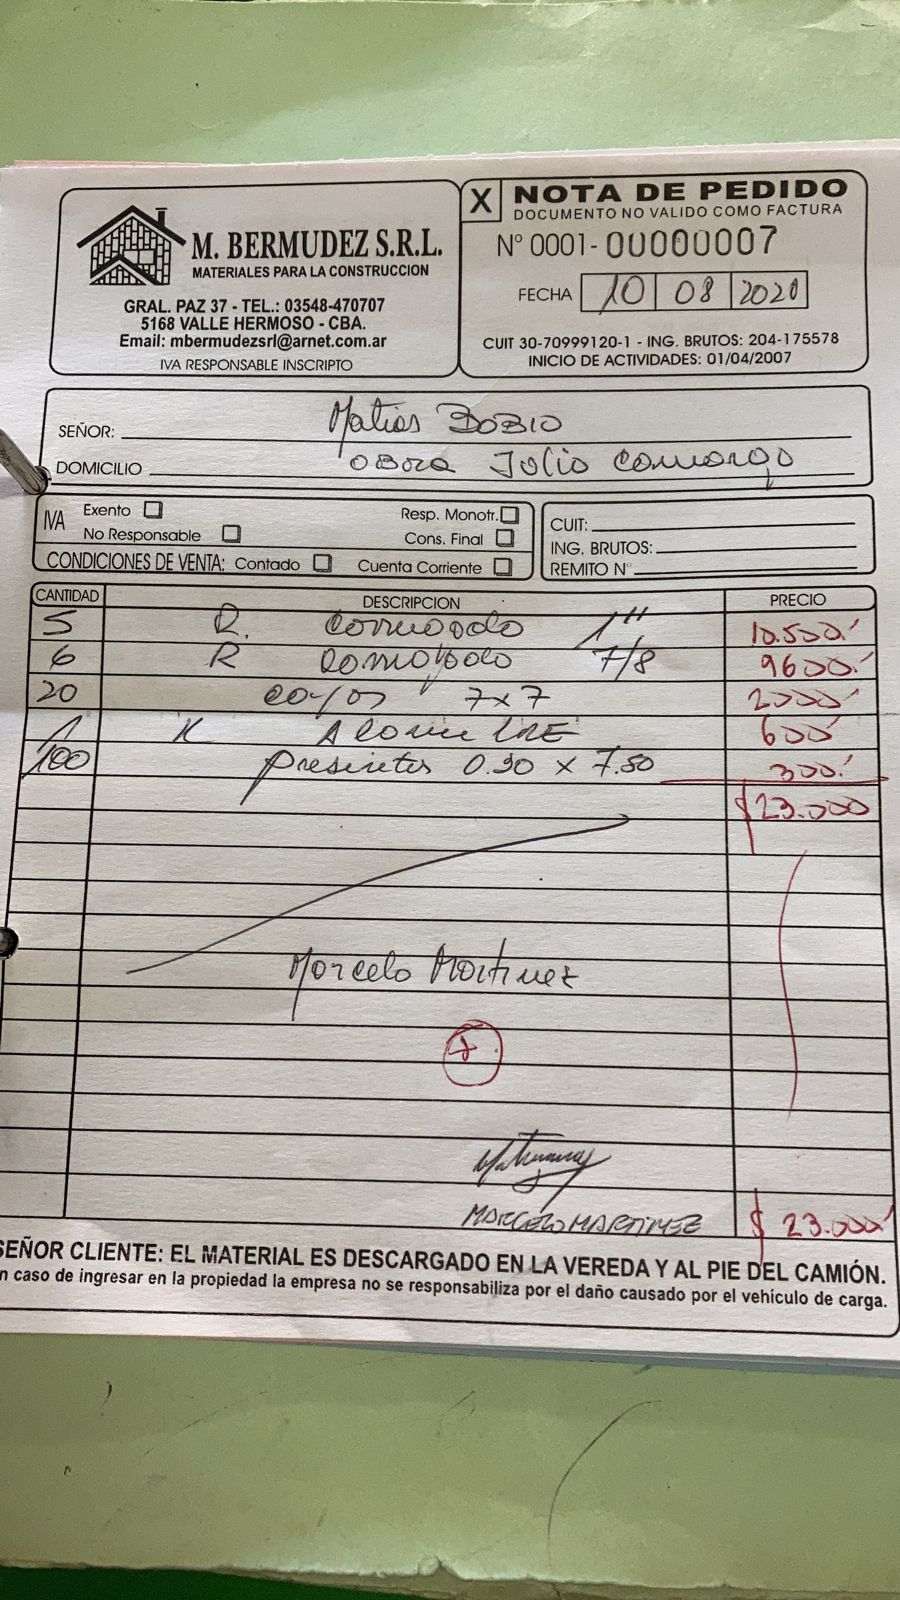 M. BERMUDEZ S.R.L.
MATERIALES PARA LA CONSTRUCCION
GRAL. PAZ 37 - TEL.: 03548-470707
5168 VALLE HERMOSO - CBA.
Email: mbermudezsrl@arnet.com.ar
IVA RESPONSABLE INSCRIPTO
X NOTA DE PEDIDO
DOCUMENTO NO VALIDO COMO FACTURA
Nº 0001- 00000007
FECHA 10 08 2020
CUIT 30-70999120-1 - ING. BRUTOS: 204-175578
INICIO DE ACTIVIDADES: 01/04/2007
SEÑOR: Matias BOBIO
DOMICILIO Julio Camargo
IVA Exento Resp. Monotr.
No Responsable Cons. Final
CONDICIONES DE VENTA: Contado Cuenta Corriente
CUIT:
ING. BRUTOS:
REMITO Nº
CANTIDAD DESCRIPCION PRECIO
5 R. 1" 10.500
6 R 7/8 9600
20 7x7 2000
1 K 600
100 x 7.50 300
$23.000
Marcelo Martinez
MARCELO MARTINEZ $ 23.000
SEÑOR CLIENTE: EL MATERIAL ES DESCARGADO EN LA VEREDA Y AL PIE DEL CAMIÓN.
n caso de ingresar en la propiedad la empresa no se responsabiliza por el daño causado por el vehículo de carga.